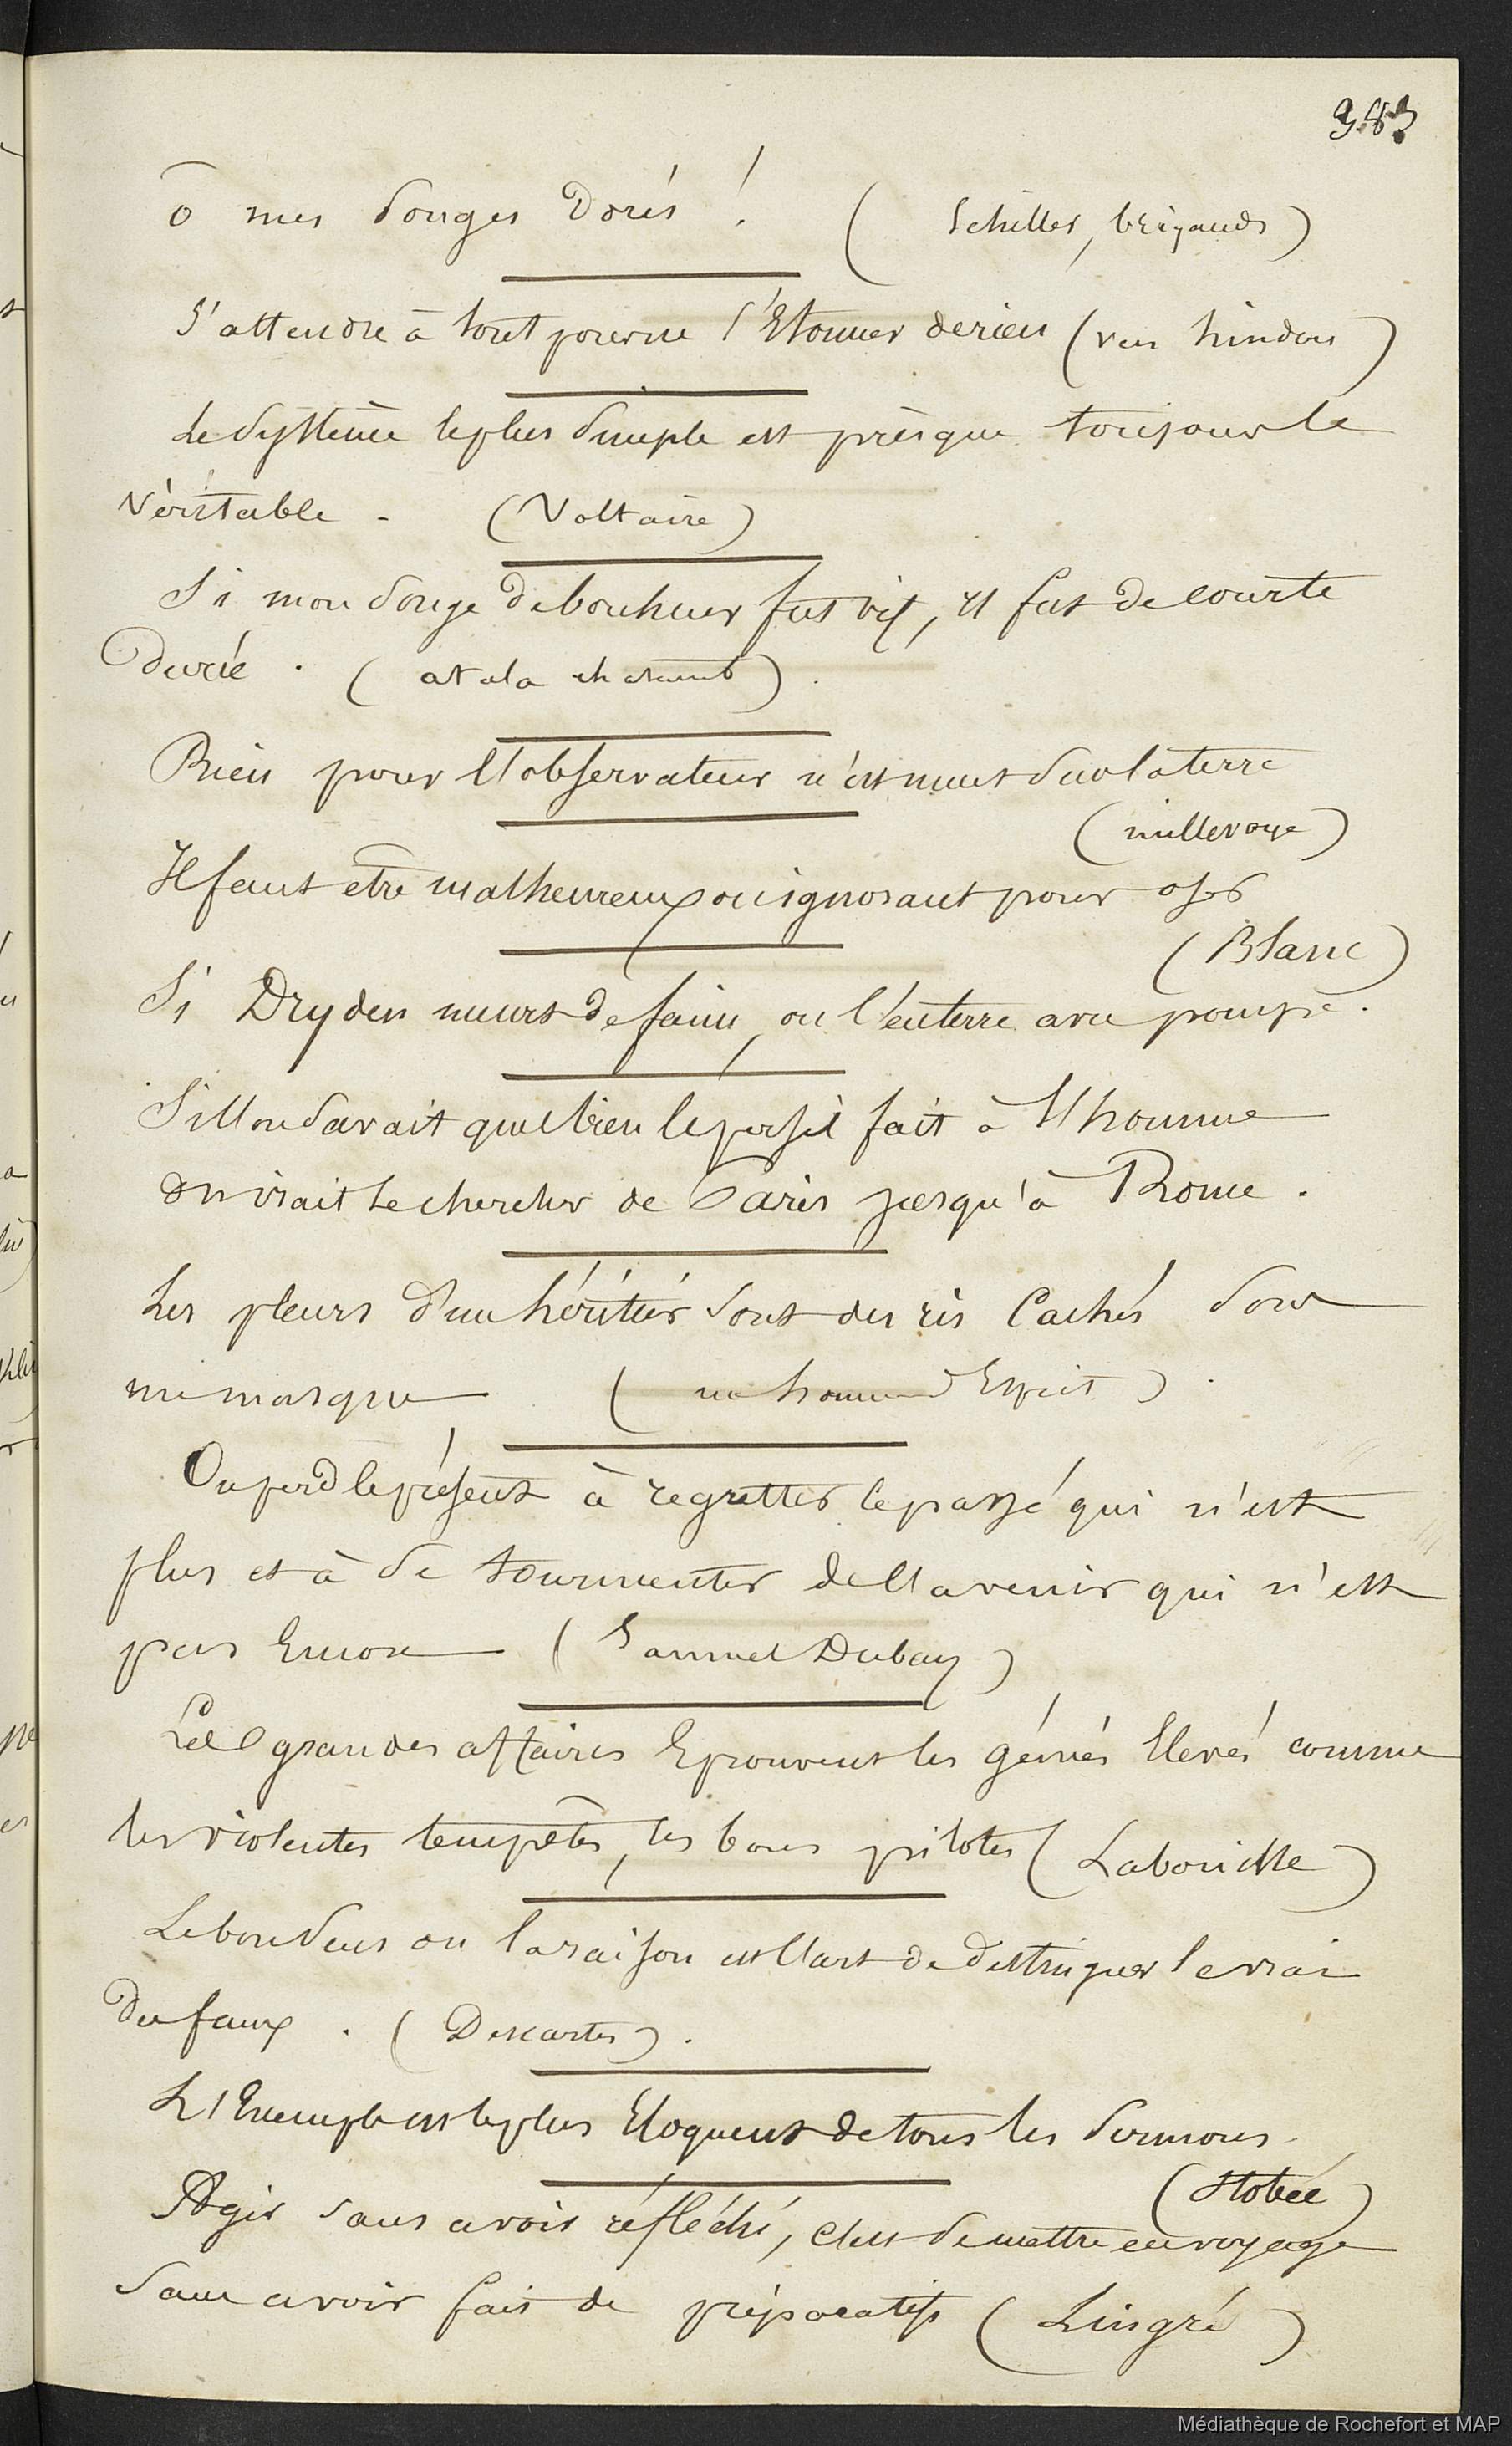 983
ô mes songes dorés ! ( Schiller, brigands )
S'attendre à tout pour ne s'Etonner de rien ( hindou )
Le Système le plus Simple est presque toujours le
Véritable . ( Voltaire )
Si mon songe de bonheur fut vif, il fut de courte
durée . ( atala chateaub ) .
Rien pour l'observateur n'est muet sur la terre
( millevoye )
Il faut être malheureux ou ignorant pour oser
( Blanc )
Si Dryden meurt de faim, on l'enterre avec pompe .
Si l'on savait quel bien le persil fait à l'homme
On irait le chercher de Paris jusqu'à Rome .
Les pleurs d'un héritier sont des ris Cachés sous
un masque ( un homme d'Esprit ) .
On perd le présent à regretter le passé qui n'est
plus et à se tourmenter de l'avenir qui n'est
pas Encore ( Samuel Dubay )
Les grandes affaires Eprouvent les génies Elevés comme
les violentes tempêtes, les bons pilotes ( Labouisse )
Le bon Sens ou la raison est l'art de distinguer le vrai
du faux . ( Descartes ) .
L'Exemple est le plus Eloquent de tous les Sermons .
( Stobée )
Agir sans avoir réfléchi, c'est se mettre en voyage
Sans avoir fait de préparatifs ( Lingré )
Médiathèque de Rochefort et MAP